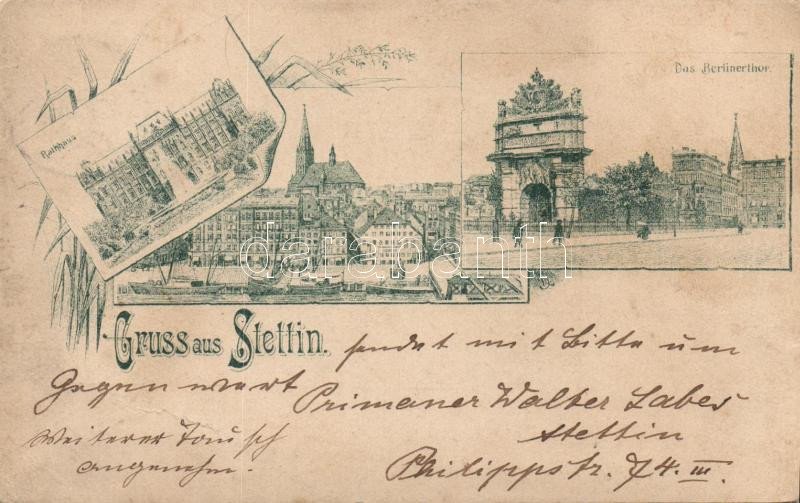 Rathhaus
Das Berlinerthor.
darabanth
Gruss aus Stettin.
sendet mit Bitte um
Gegenwert
Primaner Walter Labes
Stettin
Weiterer Tausch
angenehm.
Philippstr. 74. III.